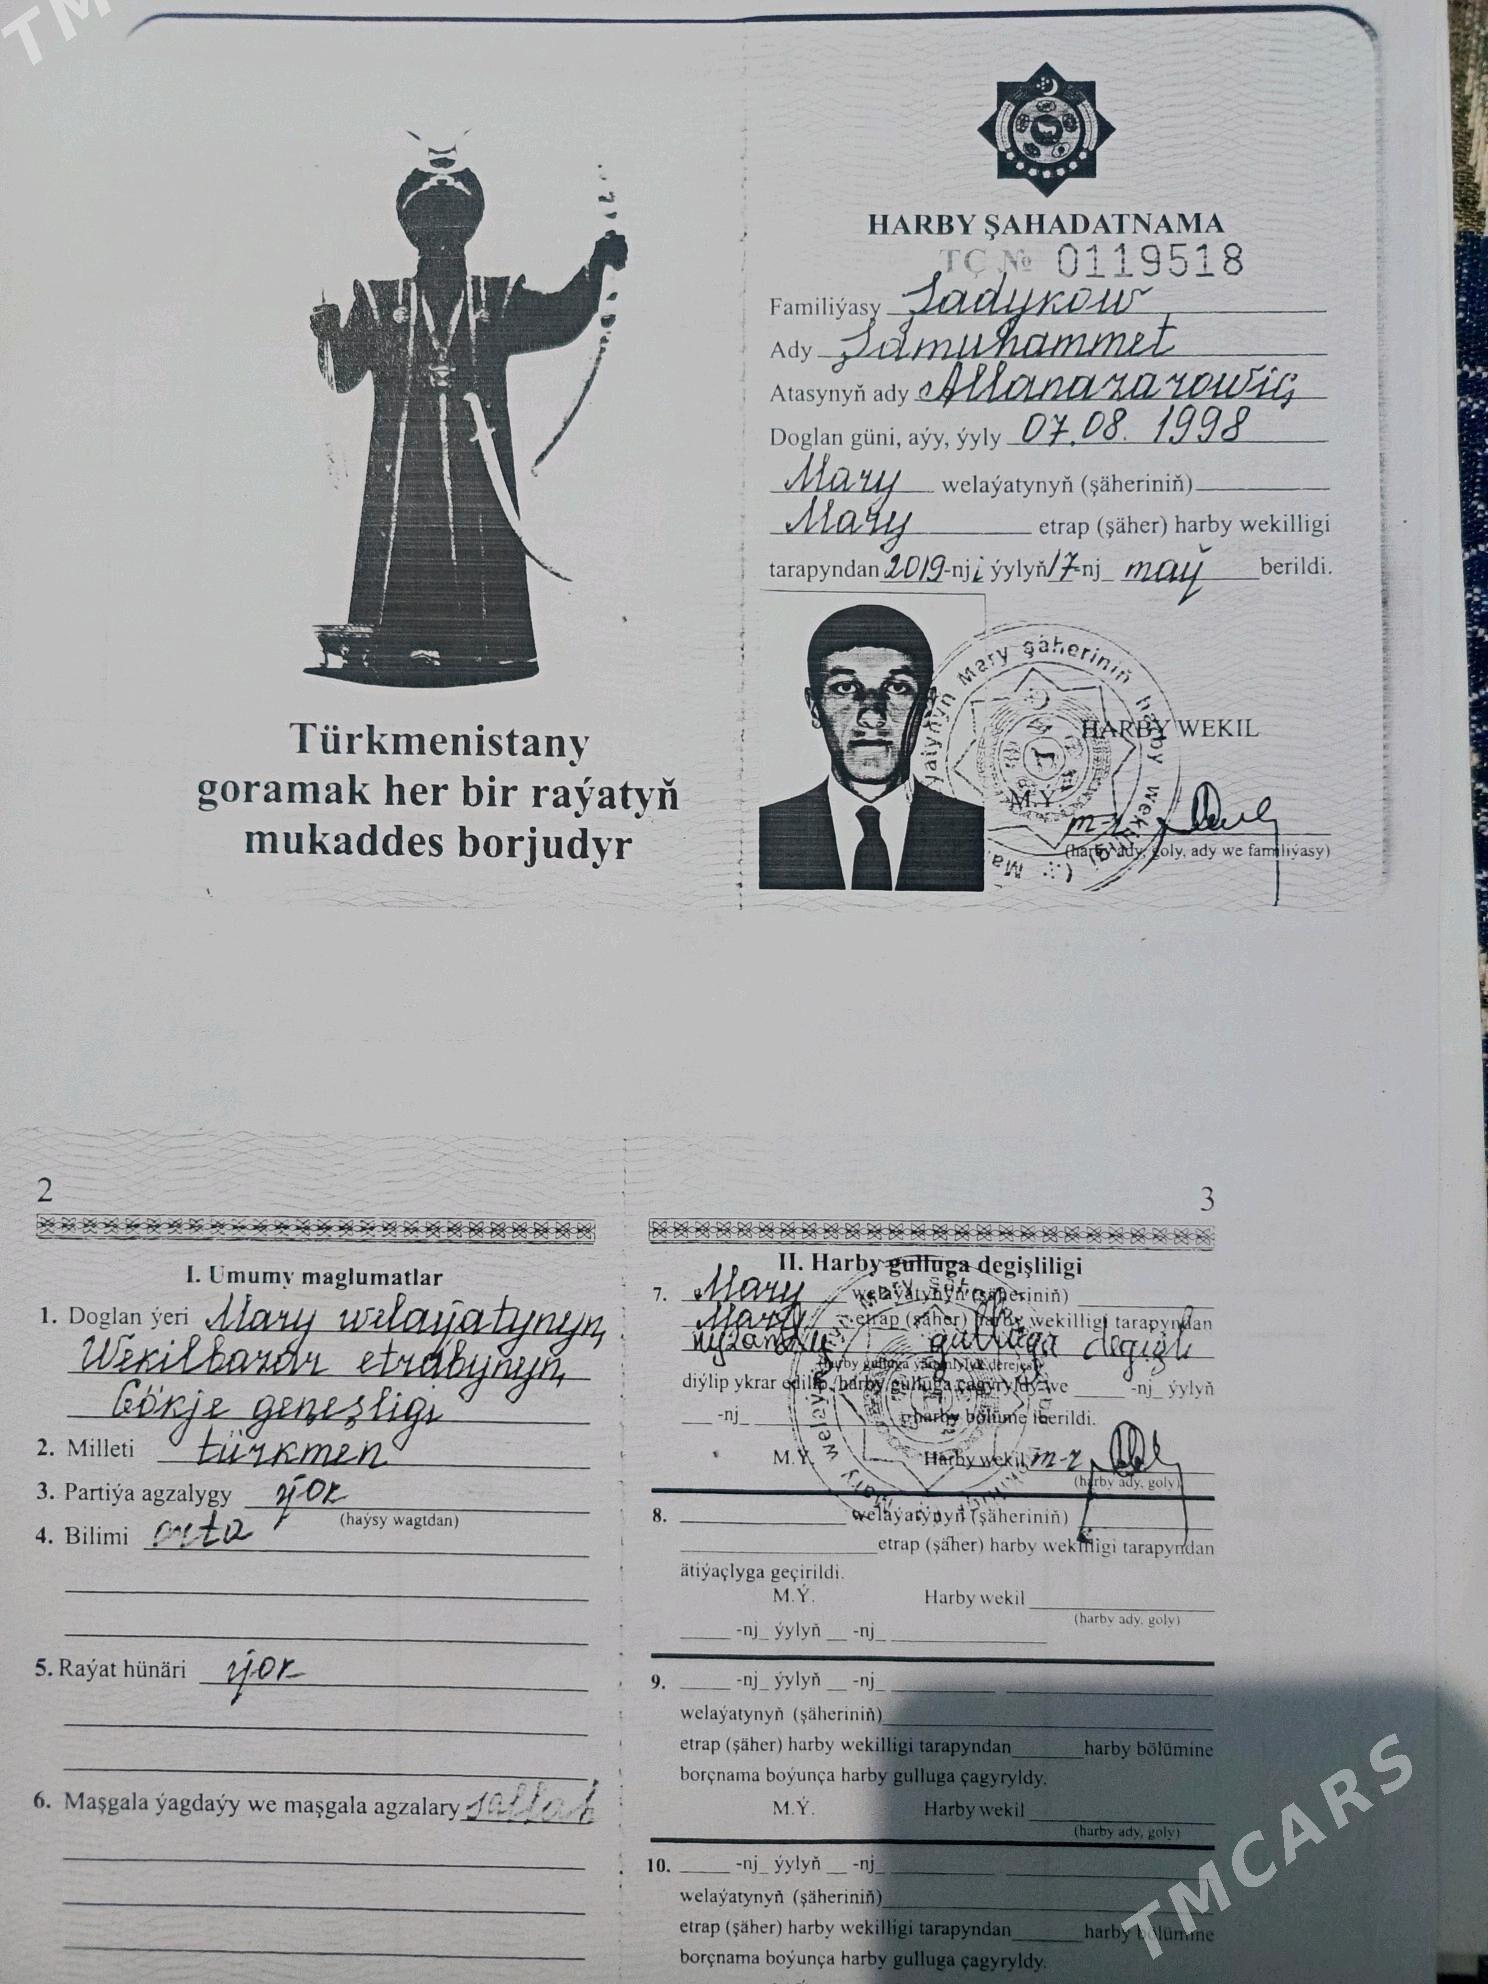 TM
HARBY ŞAHADATNAMA
TÇ № 0119518
Familiýasy Şadykow
Ady Şamuhammet
Atasynyň ady Allanazarowiç
Doglan güni, aýy, ýyly 07.08. 1998
Mary welaýatynyň (şäheriniň)
Mary etrap (şäher) harby wekilligi
tarapyndan 2019-nji ýylyň 17-nj maý berildi.
Türkmenistany
goramak her bir raýatyň
mukaddes borjudyr
Mary şäheriniň harby wekil
HARBY WEKIL
M.Ý.
m-r
(harby ady, goly, ady we familiýasy)
2
I. Umumy maglumatlar
1. Doglan ýeri Mary welaýatynyň
Wekilbazar etrabynyň
Gökje geňeşligi
2. Milleti türkmen
3. Partiýa agzalygy ýok
(haýsy wagtdan)
4. Bilimi orta
5. Raýat hünäri ýok
6. Maşgala ýagdaýy we maşgala agzalary sallah
3
II. Harby gulluga degişliligi
7. Mary welaýatynyň (şäheriniň)
Mary etrap (şäher) harby wekilligi tarapyndan
gulluga degişli
diýlip ykrar edilip, harby gulluga çagyryldy we -nj ýylyň
-nj harby bölüme iberildi.
M.Ý. Harby wekil m-r
(harby ady, goly)
8. welaýatynyň (şäheriniň)
etrap (şäher) harby wekilligi tarapyndan
ätiýaçlyga geçirildi.
M.Ý. Harby wekil
(harby ady, goly)
-nj ýylyň -nj
9. -nj ýylyň -nj
welaýatynyň (şäheriniň)
etrap (şäher) harby wekilligi tarapyndan harby bölümine
borçnama boýunça harby gulluga çagyryldy.
M.Ý. Harby wekil
(harby ady, goly)
10. -nj ýylyň -nj
welaýatynyň (şäheriniň)
etrap (şäher) harby wekilligi tarapyndan harby bölümine
borçnama boýunça harby gulluga çagyryldy.
TMCARS